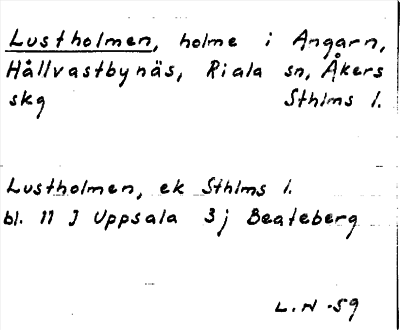 Lustholmen, holme i Angarn,
Hållvastbynäs, Riala sn, Åkers
skg Sthlms l.
Lustholmen, ek Sthlms l.
bl. 11 J Uppsala 3j Beateberg
L.N -59